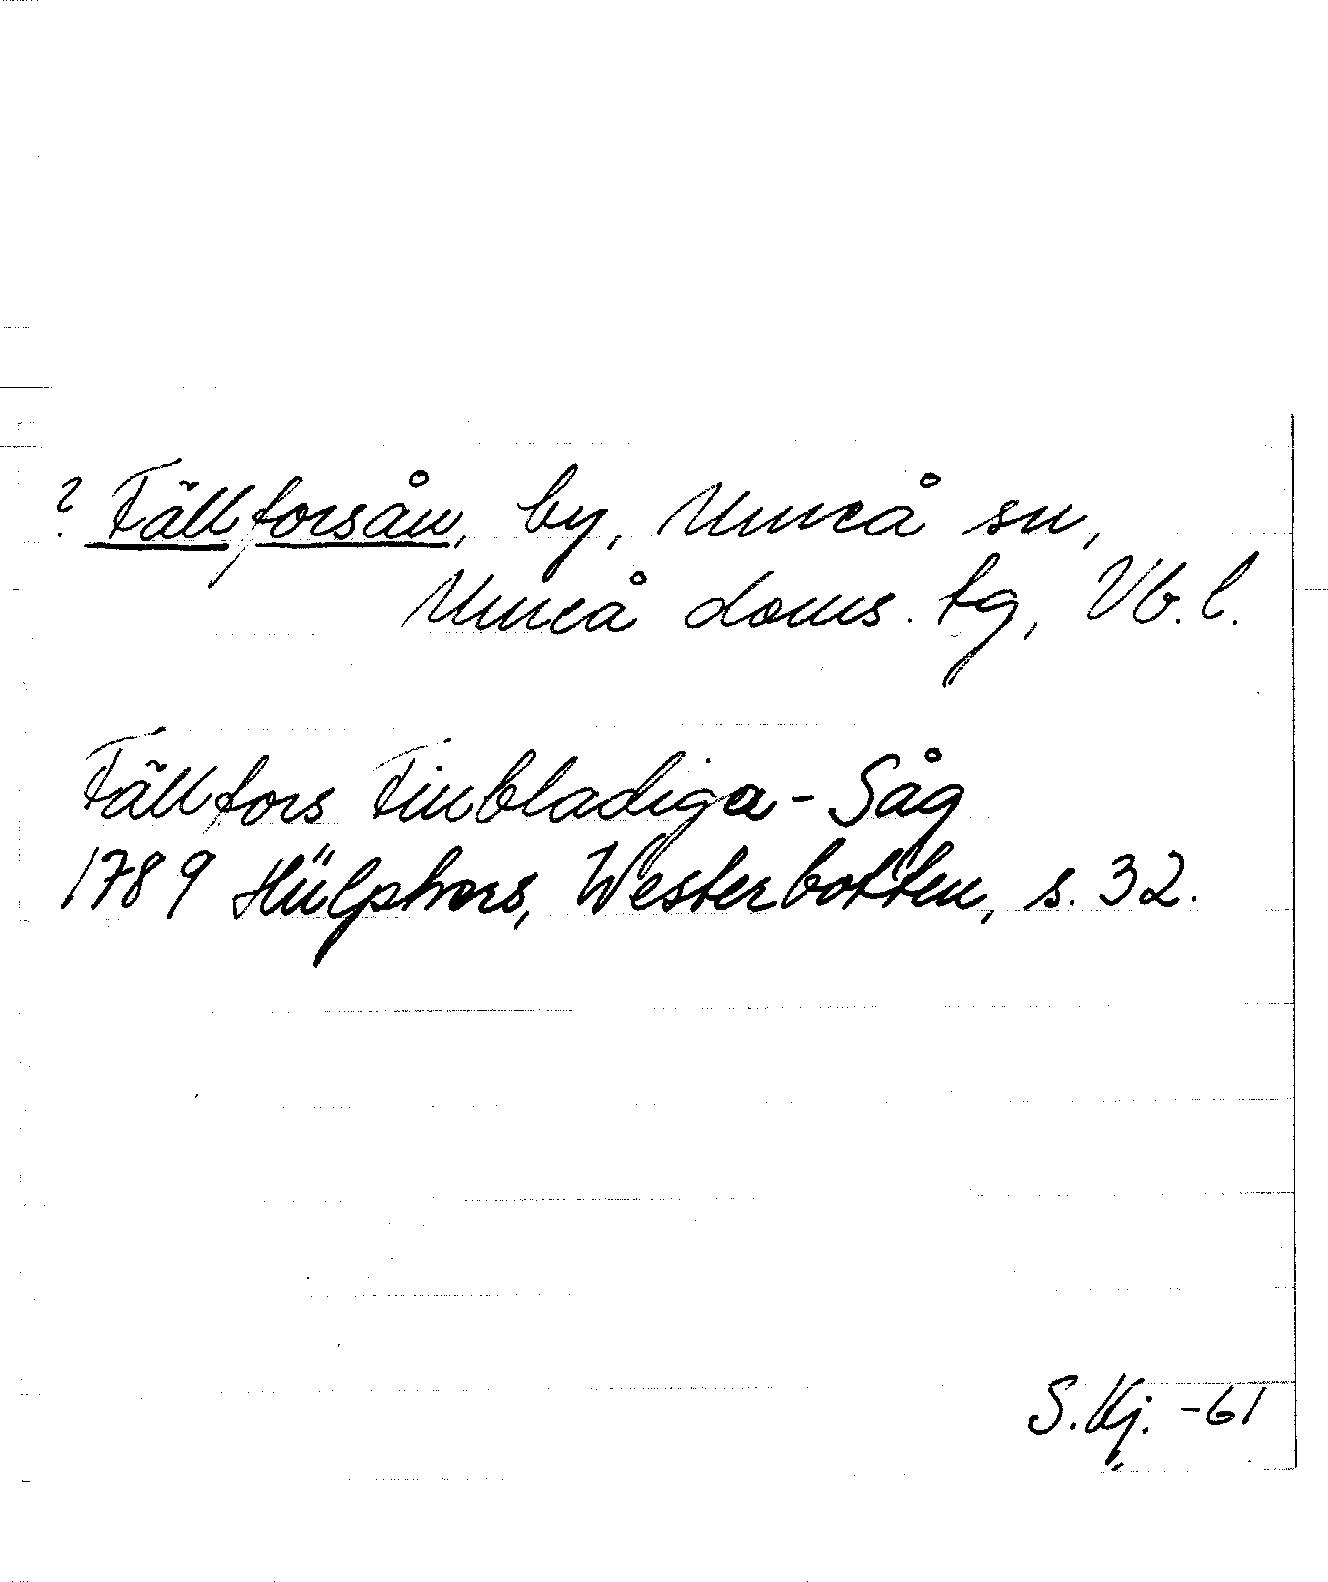 ? Fällforsån, by, Umeå sn,
Umeå doms. tg, Vb. l.
Fällfors Finbladiga-Såg
1789 Hülphers, Westerbotten, s. 32.
S.Kj. -61